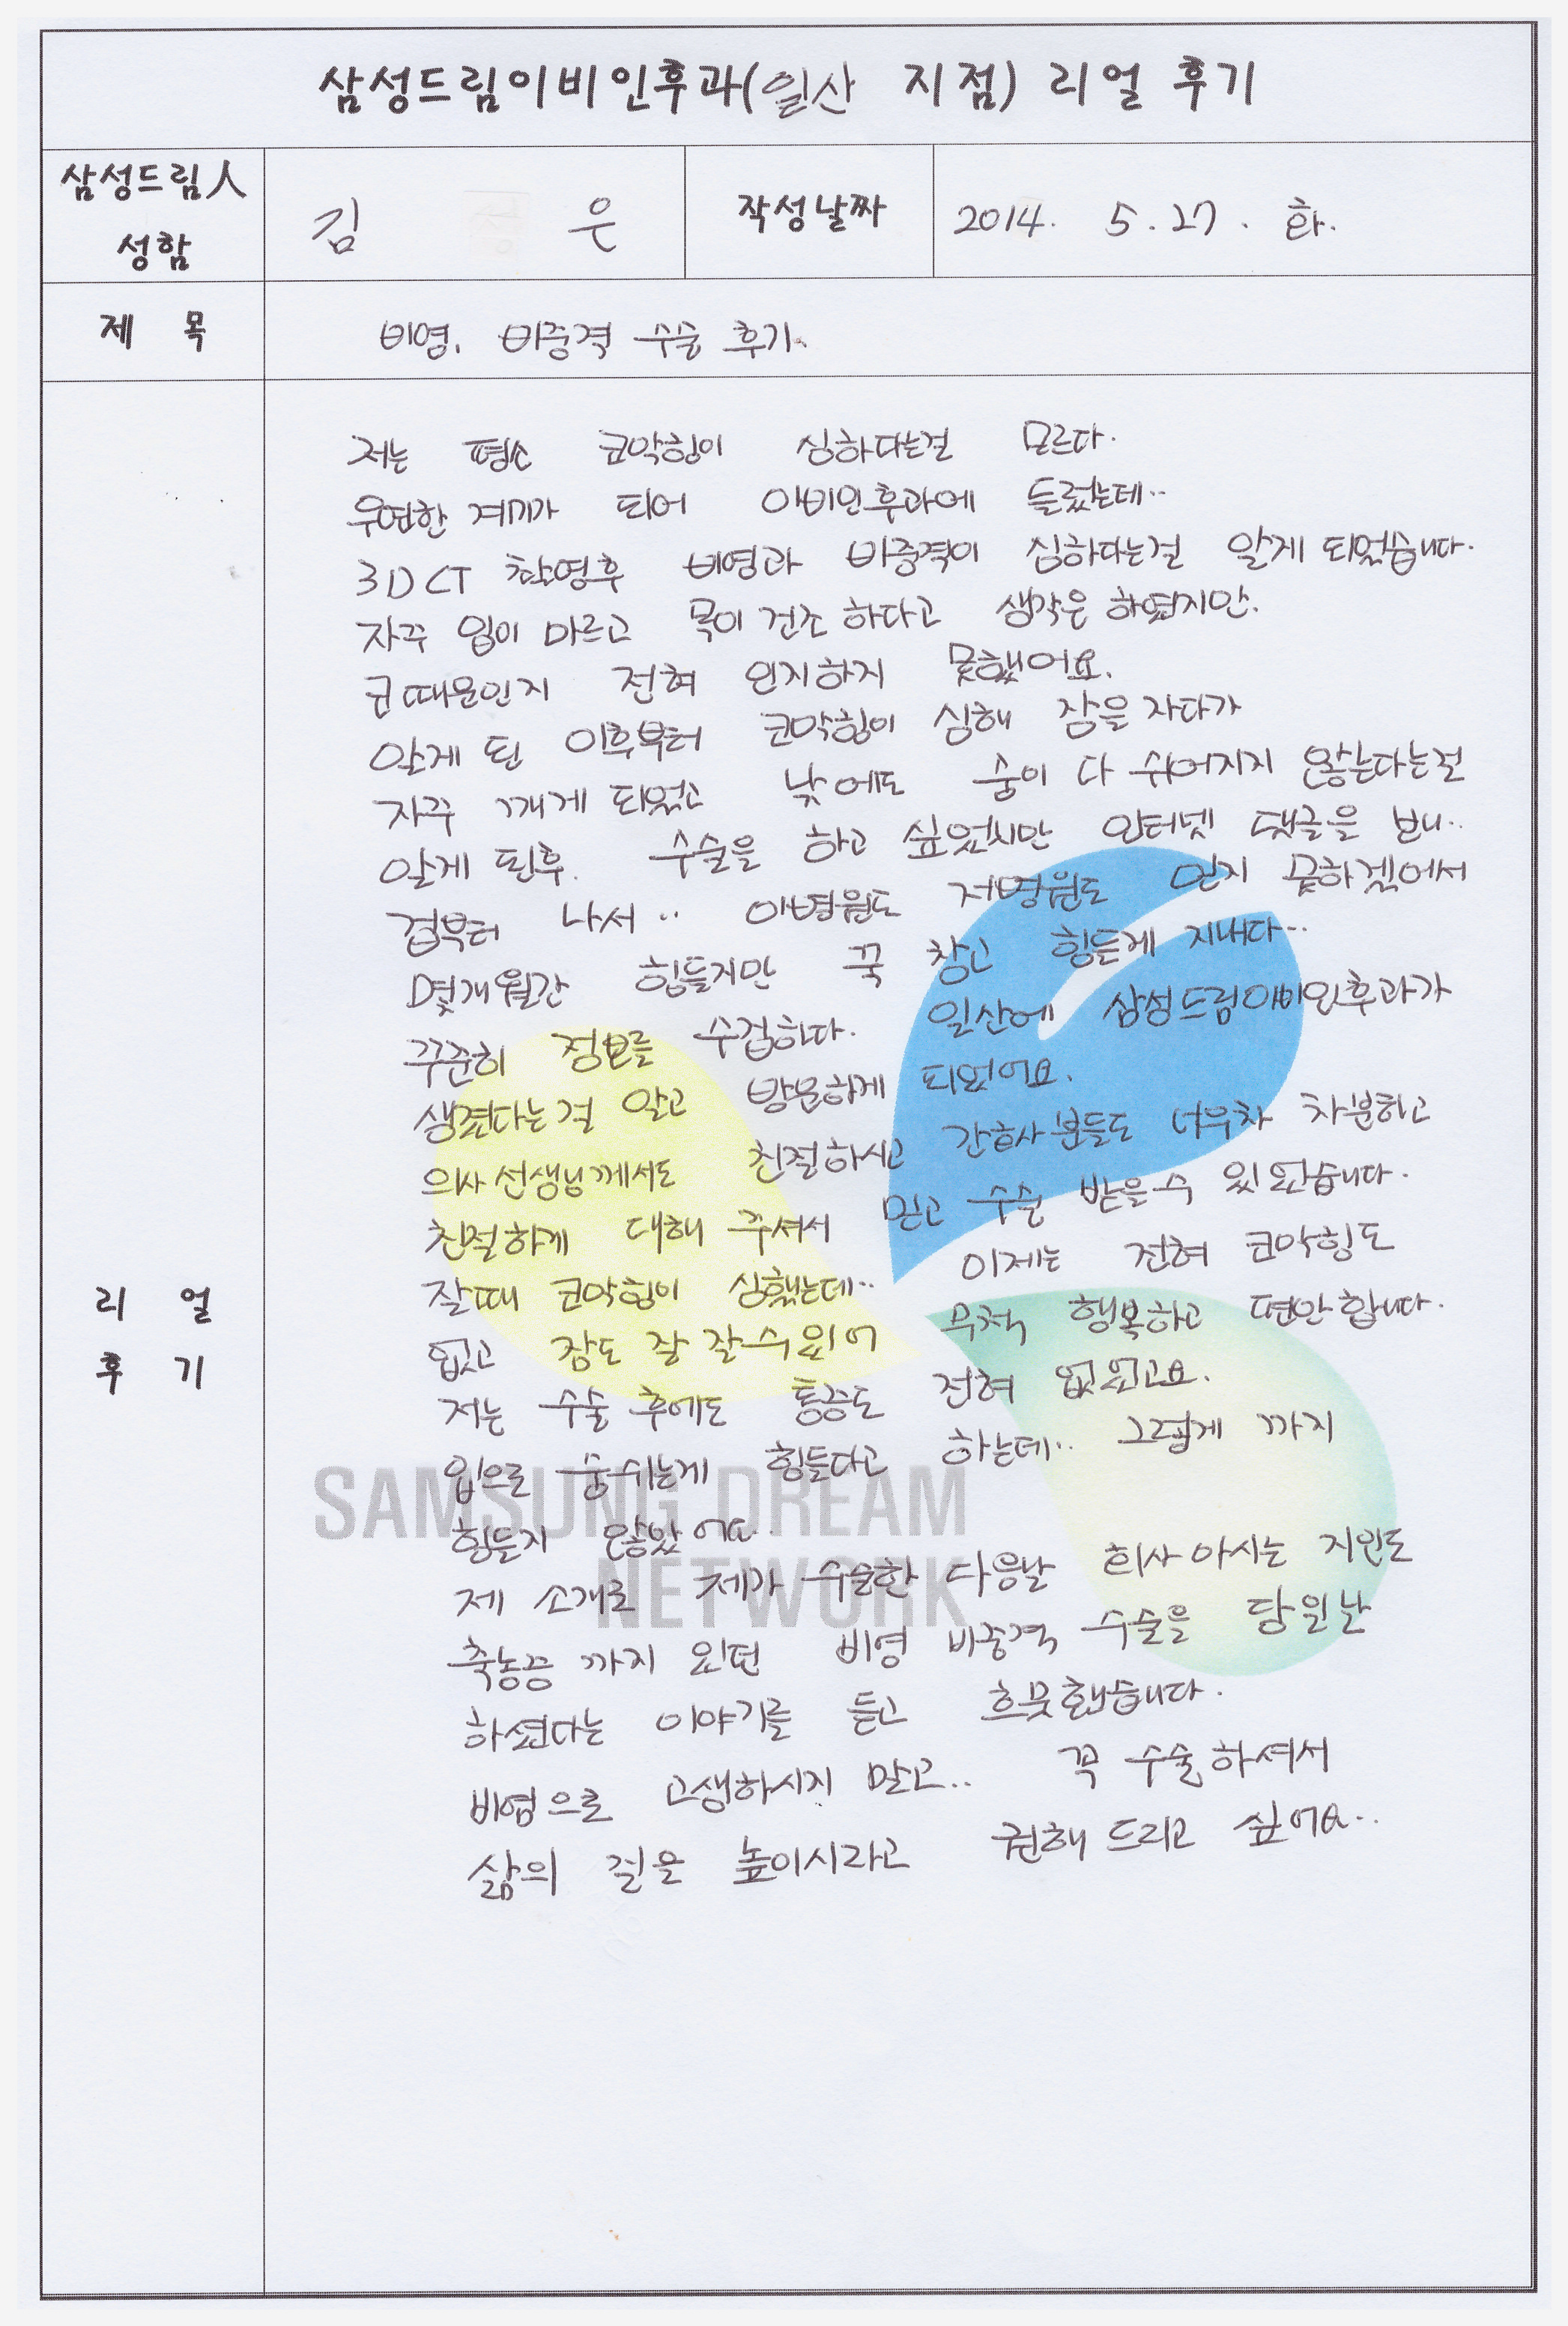 삼성드림이비인후과(일산 지점) 리얼 후기
삼성드림人 성함
김 은
작성날짜
2014. 5. 27. 화.
제 목
비염. 비중격 수술 후기.
리 얼 후 기
저는 평소 코막힘이 심하다는걸 모르다.
우연한 계기가 되어 이비인후과에 들렀는데..
3D CT 촬영후 비염과 비중격이 심하다는걸 알게 되었습니다.
자꾸 입이 마르고 목이 건조 하다고 생각은 하였지만.
코때문인지 전혀 인지하지 못했어요.
알게 된 이후부터 코막힘이 심해 잠을 자다가
자꾸 깨게 되었고 낮에도 숨이 다 쉬어지지 않는다는걸
알게 된후. 수술을 하고 싶었지만 인터넷 댓글을 보니..
겁부터 나서.. 이병원도 저병원도 믿지 못하겠어서
몇개월간 힘들지만 꾹 참고 힘들게 지내다...
꾸준히 정보를 수집하다. 일산에 삼성드림이비인후과가
생겼다는걸 알고 방문하게 되었어요.
의사 선생님께서도 친절하시고 간호사분들도 너무차 차분하고
친절하게 대해 주셔서 믿고 수술 받을수 있었습니다.
잘때 코막힘이 심했는데.. 이제는 전혀 코막힘도
없고 잠도 잘 잘수있어 무척 행복하고 편안합니다.
저는 수술 후에도 통증도 전혀 없었고요.
입으로 숨쉬는게 힘들다고 하는데.. 그렇게 까지
힘들지 않았어요..
제 소개로 제가 수술한 다음날 회사 아시는 지인도
축농증 까지 있던 비염 비중격 수술을 당일날
하셨다는 이야기를 듣고 흐뭇했습니다.
비염으로 고생하시지 말고.. 꼭 수술하셔서
삶의 질을 높이시라고 권해 드리고 싶어요..
SAMSUNG DREAM
NETWORK